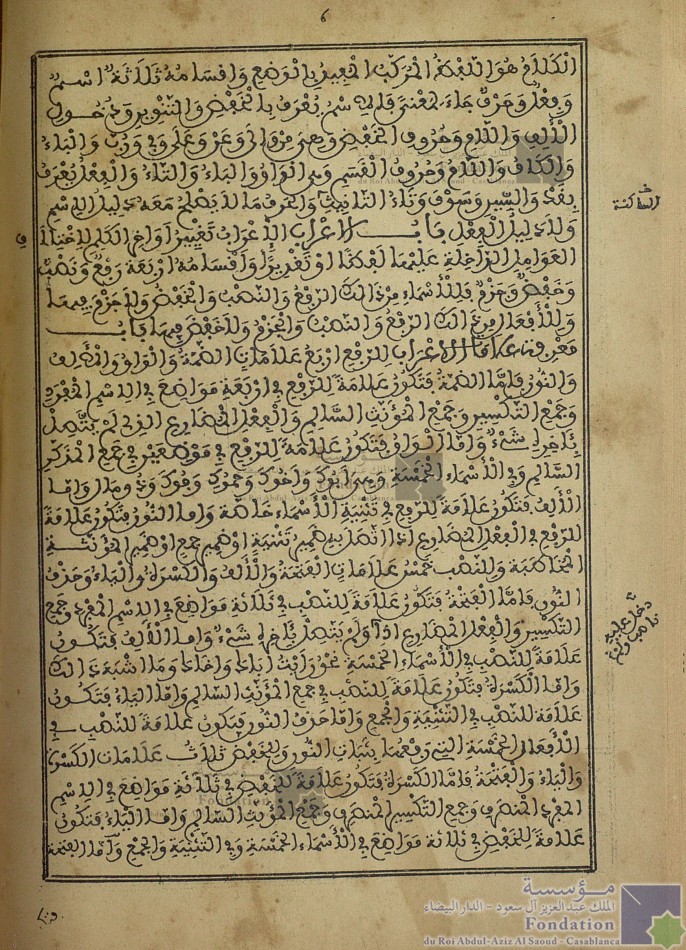 6
الكلام هو اللفظ المركب المفيد بالوضع وأقسامه ثلاثة اسم
وفعل وحرف جاء لمعنى فالاسم يعرف بالخفض والتنوين ودخول
الألف واللام وحروف الخفض وهي من وإلى وعن وعلى وفي ورب والباء
والكاف واللام وحروف القسم وهي الواو والباء والتاء والفعل يعرف
بقد والسين وسوف وتاء التانيث والحرف ما لا يصلح معه دليل الاسم
الساكنة
ولا دليل الفعل باب الاعراب الإعراب تغيير أواخر الكلم لاختلاف
العوامل الداخلة عليها لفظا او تقديرا وأقسامه أربعة رفع ونصب
وخفض وجزم فللأسماء من ذلك الرفع والنصب والخفض ولا جزم فيها
وللأفعال من ذلك الرفع والنصب والجزم ولا خفض فيها باب
معرفة علامات الاعراب للرفع اربع علامات الضمة والواو والألف
والنون فاما الضمة فتكون علامة للرفع في اربعة مواضع في الاسم المفرد
وجمع التكسير وجمع المؤنث السالم والفعل المضارع الذي لم يتصل
بآخره شيء واما الواو فتكون علامة للرفع في موضعين في جمع المذكر
السالم وفي الأسماء الخمسة وهي أبوك وأخوك وحموك وفوك وذو مال واما
الألف فتكون علامة للرفع في تثنية الأسماء خاصة واما النون فتكون علامة
للرفع في الفعل المضارع اذا اتصل به ضمير تثنية او ضمير جمع او ضمير المؤنثة
المخاطبة وللنصب خمس علامات الفتحة والألف والكسرة والياء وحذف
النون فاما الفتحة فتكون علامة للنصب في ثلاثة مواضع في الاسم المفرد وجمع
التكسير والفعل المضارع اذا ولم يتصل بآخره شيء واما الألف فتكون
دخل عليه
ناصب
علامة للنصب في الأسماء الخمسة نحو رأيت أباك وأخاك وما اشبه ذلك
واما الكسرة فتكون علامة للنصب في جمع المؤنث السالم واما الياء فتكون
علامة للنصب في التثنية والجمع واما حذف النون فيكون علامة للنصب في
الأفعال الخمسة التي رفعها بثبات النون وللخفض ثلاث علامات الكسرة
والياء والفتحة فاما الكسرة فتكون علامة للخفض في ثلاثة مواضع في الاسم
المفرد المنصرف وجمع التكسير المنصرف وجمع المؤنث السالم واما الياء فتكون
علامة للخفض في ثلاثة مواضع في الأسماء الخمسة وفي التثنية والجمع واما الفتحة
مؤسسة
الملك عبد العزيز آل سعود - الدار البيضاء
Fondation
du Roi Abdul-Aziz Al Saoud - Casablanca